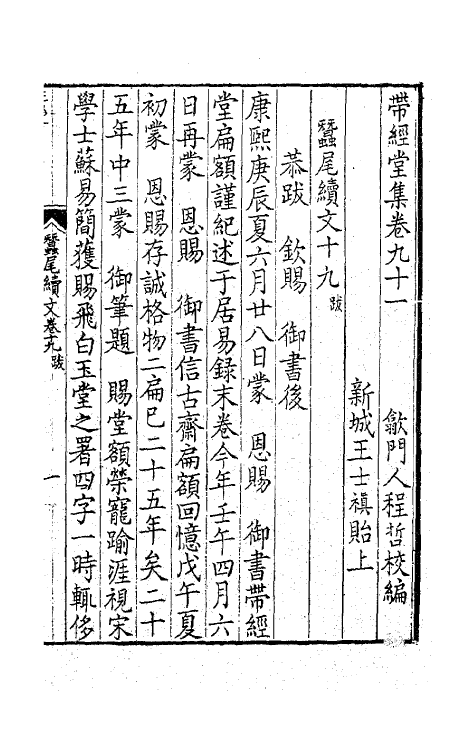 帶經堂集卷九十一
歙門人程哲校編
新城王士禛貽上
蠶尾續文十九 跋
恭跋 欽賜 御書後
康熙庚辰夏六月廿八日蒙 恩賜 御書帶經
堂扁額謹紀述于居易録末卷今年壬午四月六
日再蒙 恩賜 御書信古齋扁額回憶戊午夏
初蒙 恩賜存誠格物二扁已二十五年矣二十
五年中三蒙 御筆題 賜堂額榮寵踰涯視宋
學士蘇易簡獲賜飛白玉堂之署四字一時輒侈
蠶尾續文卷十九 跋 一